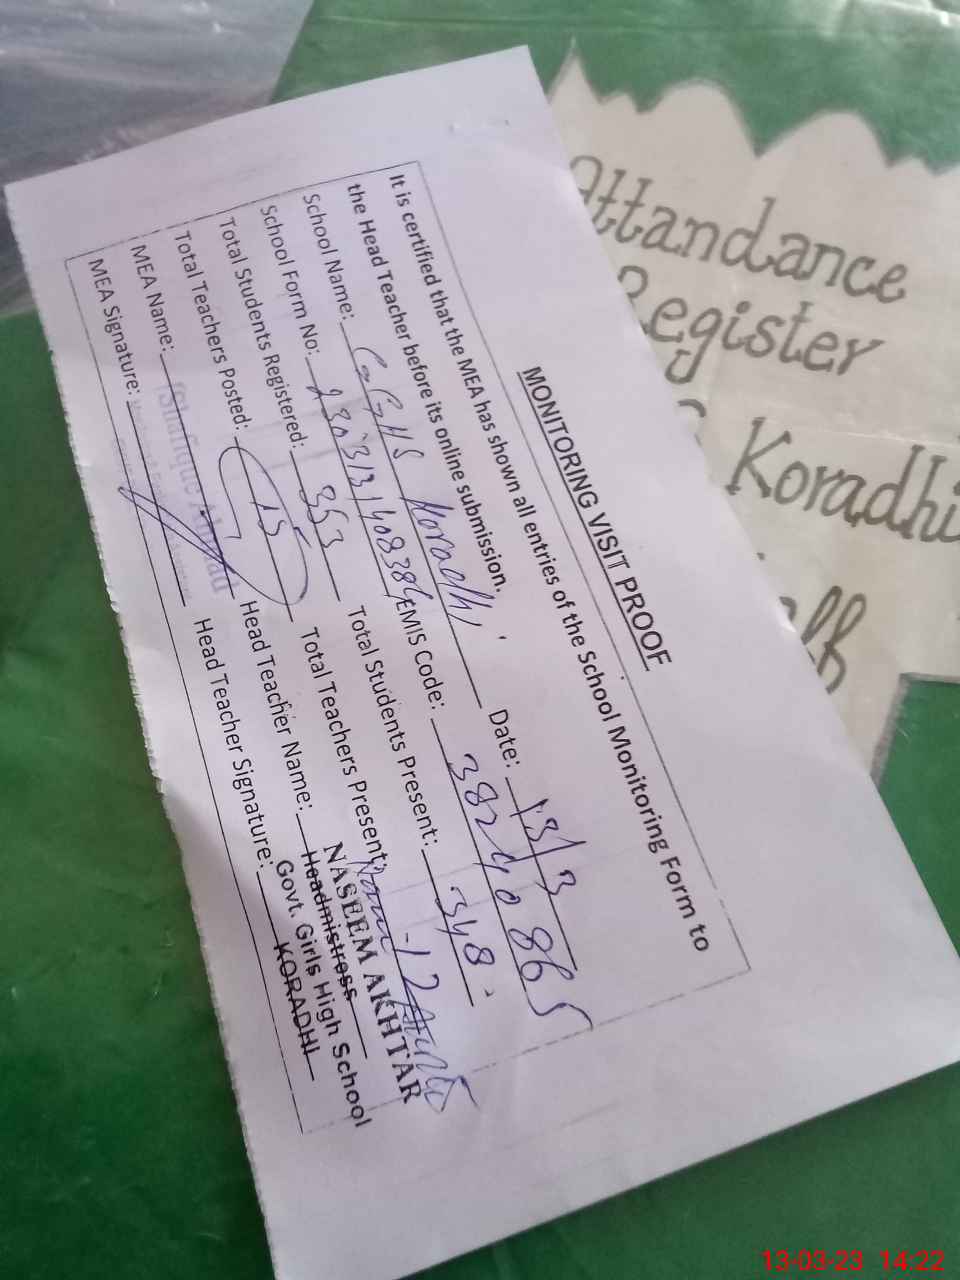 MONITORING VISIT PROOF
It is certified that the MEA has shown all entries of the School Monitoring Form to
the Head Teacher before its online submission.
School Name: GGHS Koradhi Date: 13/3
School Form No: EMIS Code: 38240865
Total Students Registered: 353 Total Students Present: 348
Total Teachers Posted: 15 Total Teachers Present: 12
MEA Name: Shafique Ahmad Head Teacher Name: NASEEM AKHTAR
Headmistress
MEA Signature: Head Teacher Signature: Govt. Girls High School
KORADHI
Attandance
Register
Koradhi
13-03-23 14:22